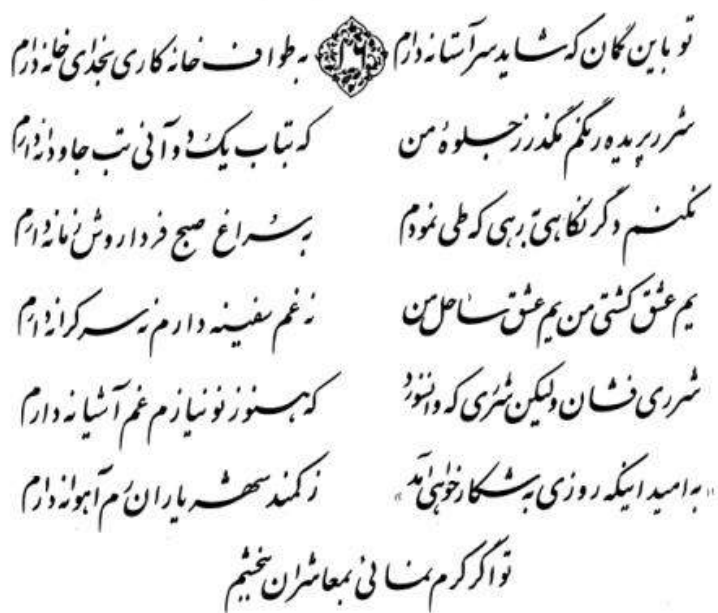 تو باین گمان که شاید سر آستانه دارم ۲۶ به طواف خانه کاری بخدای خانه دارم
شرر پریده رنگم مگذر ز جلوۂ من که بتاب یک دو آنی تب جاودانه دارم
نکنم دگر نگاهی به رهی که طی نمودم به سراغ صبح فردا روش زمانه دارم
یم عشق کشتی من یم عشق ساحل من نه غم سفینه دارم نه سر کرانه دارم
شرری فشان ولیکن شرری که وا نسوزد که هنوز نو نیازم غم آشیانه دارم
«به امید اینکه روزی به شکار خواهی آمد» ز کمند شهریاران رم آهوانه دارم
تو اگر کرم نمائی بمعاشران ببخشم